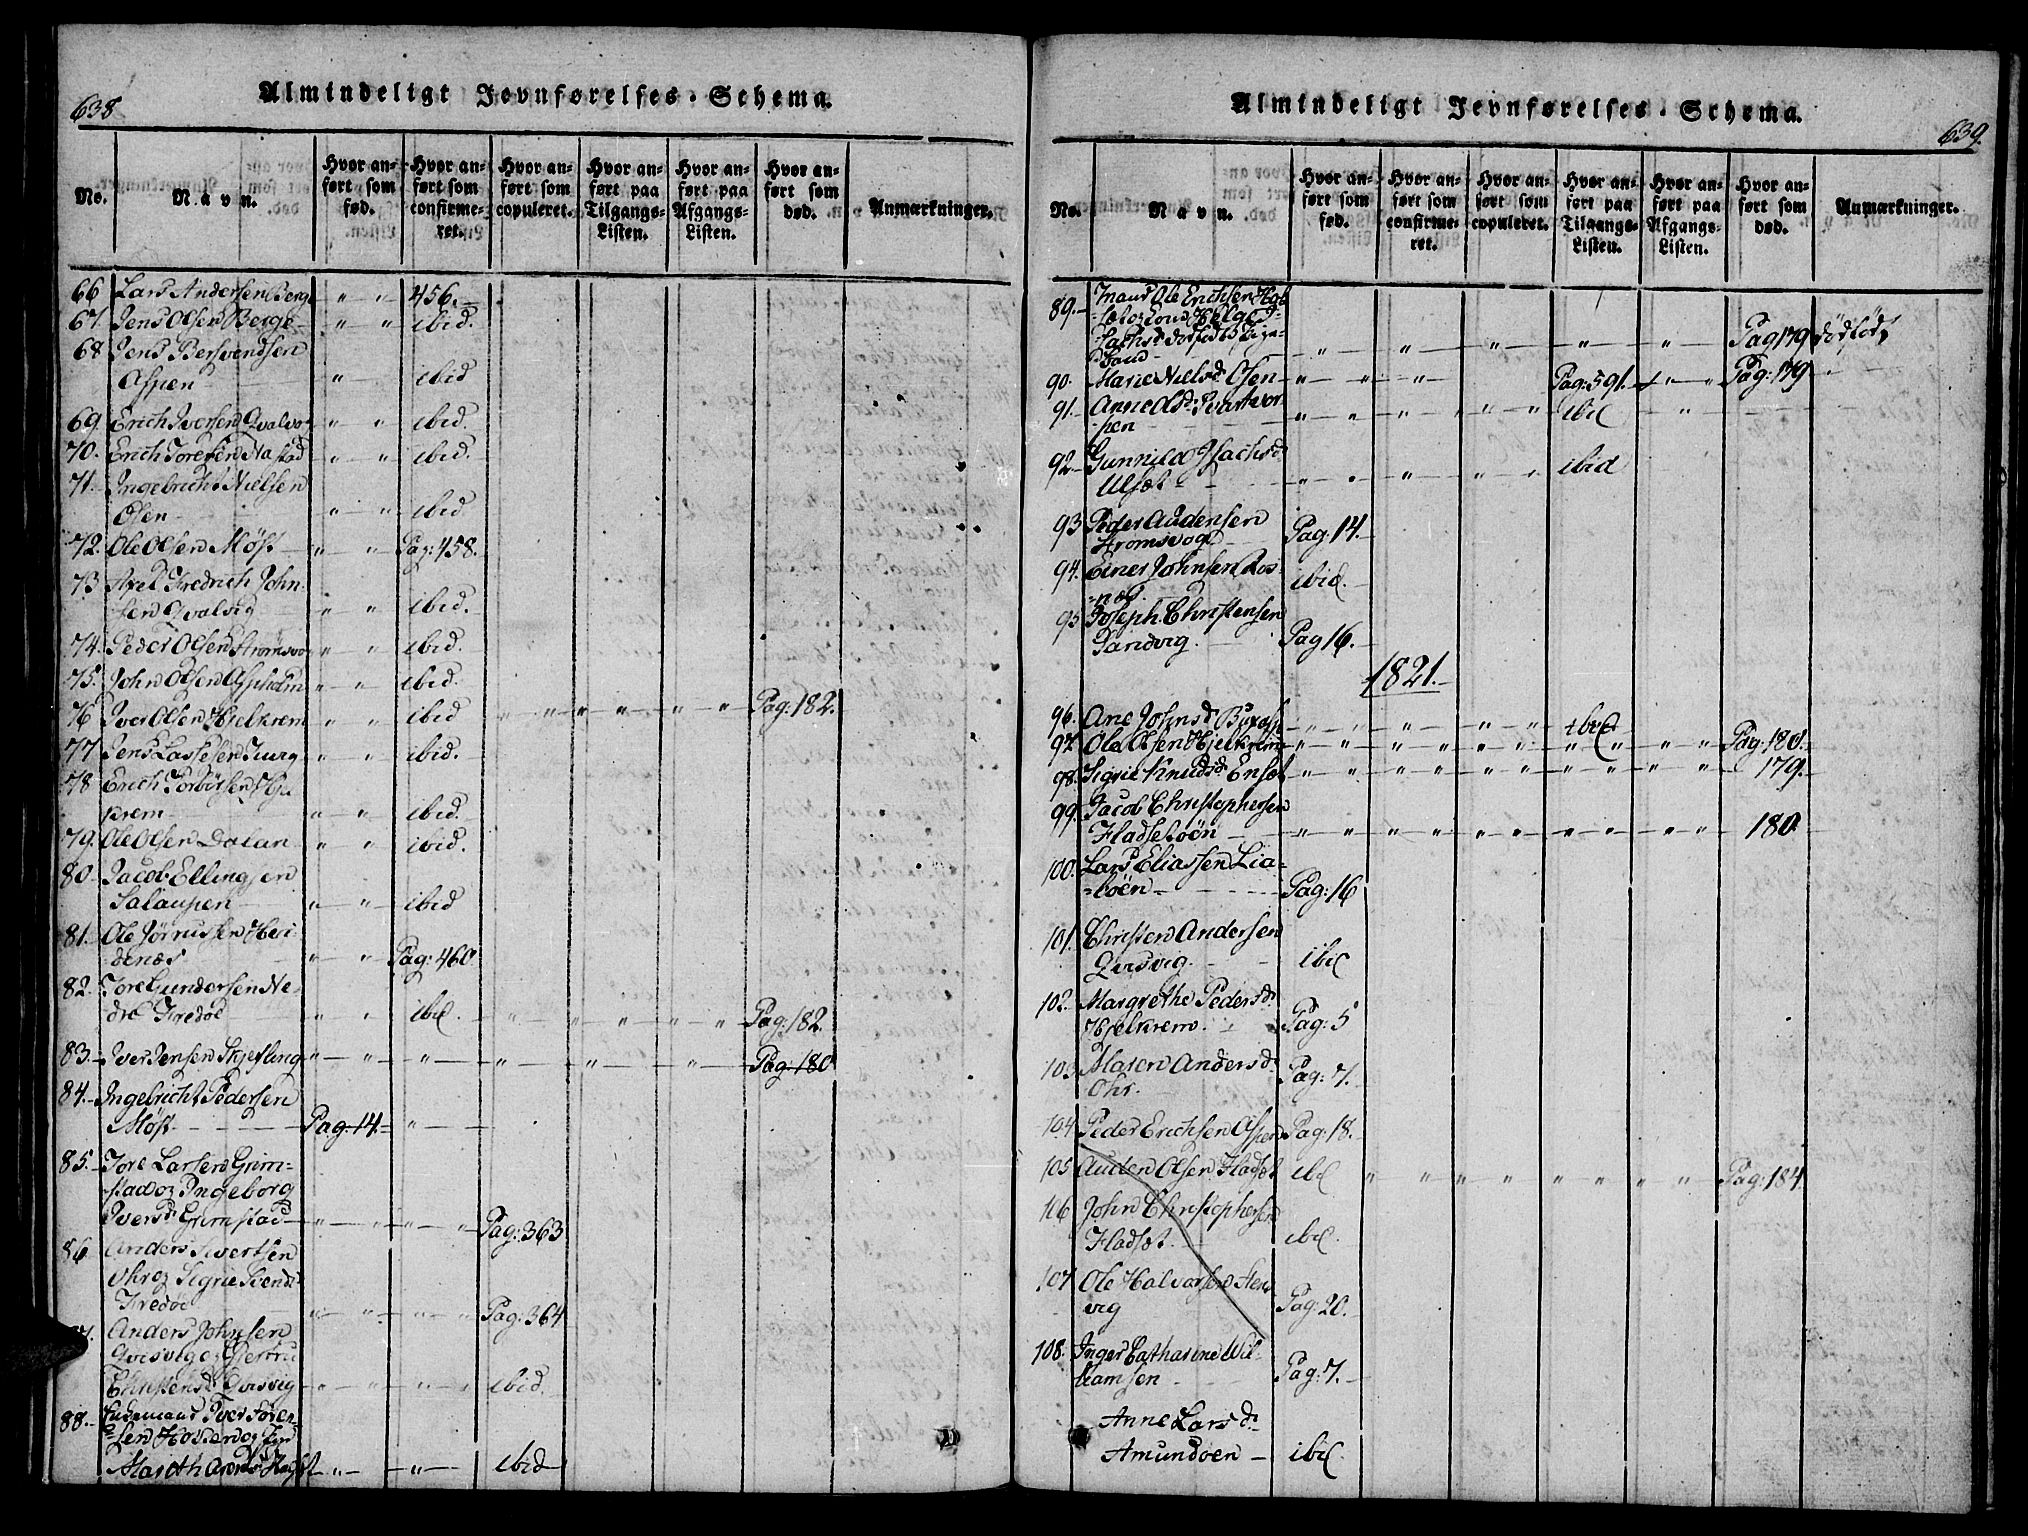 638
Almindeligt Jevnførelses-Schema.
No.
Navn.
Hvor anført som fød.
Hvor anført som confirmeret.
Hvor anført som copuleret.
Hvor anført paa Tilgangs-Listen.
Hvor anført paa Afgangs-Listen.
Hvor anført som død.
Anmærkninger.
66 Lars Andersen Berge " " 456.
67. Jens Olsen Berge " " ibid.
68 Jens Bersvendsen
Aspen " ibid
69. Erich Iversen Qvalvog " " ibid.
70. Erich Toresen Nastad " " ibid.
71. Ingebricht Nielsen
Osen " " ibid
72. Ole Olsen Møst " " Pag: 458.
73 Axel Fredrich John-
sen Qvalvig " " ibid.
74. Peder Olsen Strømsvog " " ibid.
75. John Olsen Aspholm " " ibid.
76 Iver Olsen Hjelkrem " " ibid " " " " " " Pag: 182.
77 Jens Lassesen " " ibid.
78 Erich Torbørsen Hjel
krem " " ibid.
79. Ole Olsen Dalan " " ibid.
80 Jacob Ellingsen
Salaupen " " ibid
81. Ole Jørnussen Hen-
danæs " " Pag: 460
82. Tore Gundersen Ne-
dre Fredøe " " ibid. " " " " " Pag: 182.
83. Iver Jensen " " " " " " Pag: 180
84. Ingebricht Pedersen
Møst Pag. 14. "
85. Tore Larsen Grim-
stad og Ingeborg
Iversd: Grimstad " " " " Pag: 363
86 Anders Sivertsen
Ohr og Sigrie Svendsd
Fredøe " " " " Pag: 364
Anders Johnsen
Qvisvig og Giertru
Christensd Qvisvig " " " " ibid.
88. Iver Søren-
sen
Mareth " " ibid
639.
Almindeligt Jevnførelses-Schema.
No.
Navn.
Hvor anført som fød.
Hvor anført som confirmeret.
Hvor anført som copuleret.
Hvor anført paa Tilgangs-Listen.
Hvor anført paa Afgangs-Listen.
Hvor anført som død.
Anmærkninger.
89. Ole Erichsen
Helge
" " " " " Pag 179 dødfødt
90. Marie Nielsd Osen " " " Pag: 591. " " Pag: 179
91. Anne Olsd: Svartvor-
pen " " " " " ibid "
92. Gunnild Isachsd:
Ulsæt " " " " " ibid
93 Peder Audensen
Strømsvog Pag: 14.
94. Einer Johnsen Ros-
næs ibid.
95 Joseph Christensen
Sandvig. Pag 16.
1821.
96. Ane Johnsd " " " " " ibid
97. Ole Olsen Hjelkrem " " " " " " " " " " Pag: 180.
98. Sigrie Knudsd: Enset " " " " " " " " " " 179.
99. Jacob Christophersen
Fladsetøen " " " " " " " " " " 180.
100. Lars Eliassen Lia-
bøen Pag: 16
101. Christen Andersen
Qvisvig. ibid
102. Margrethe Pedersd:
Hjelkrem. Pag: 5
103 Maren Andersd:
Ohr. Pag: 7.
104 Peder Erichsen Aspen Pag: 18.
105 Auden Olsen Fladset ibid " " " " " " " " Pag: 184
106 John Christophersen
Fladset. ibid.
107 Ole Halvorsen Sten-
vig Pag: 20.
108. Inger Catharine Wil-
liamsen Pag: 7.
Anne Larsd:
Amundøen ibid.